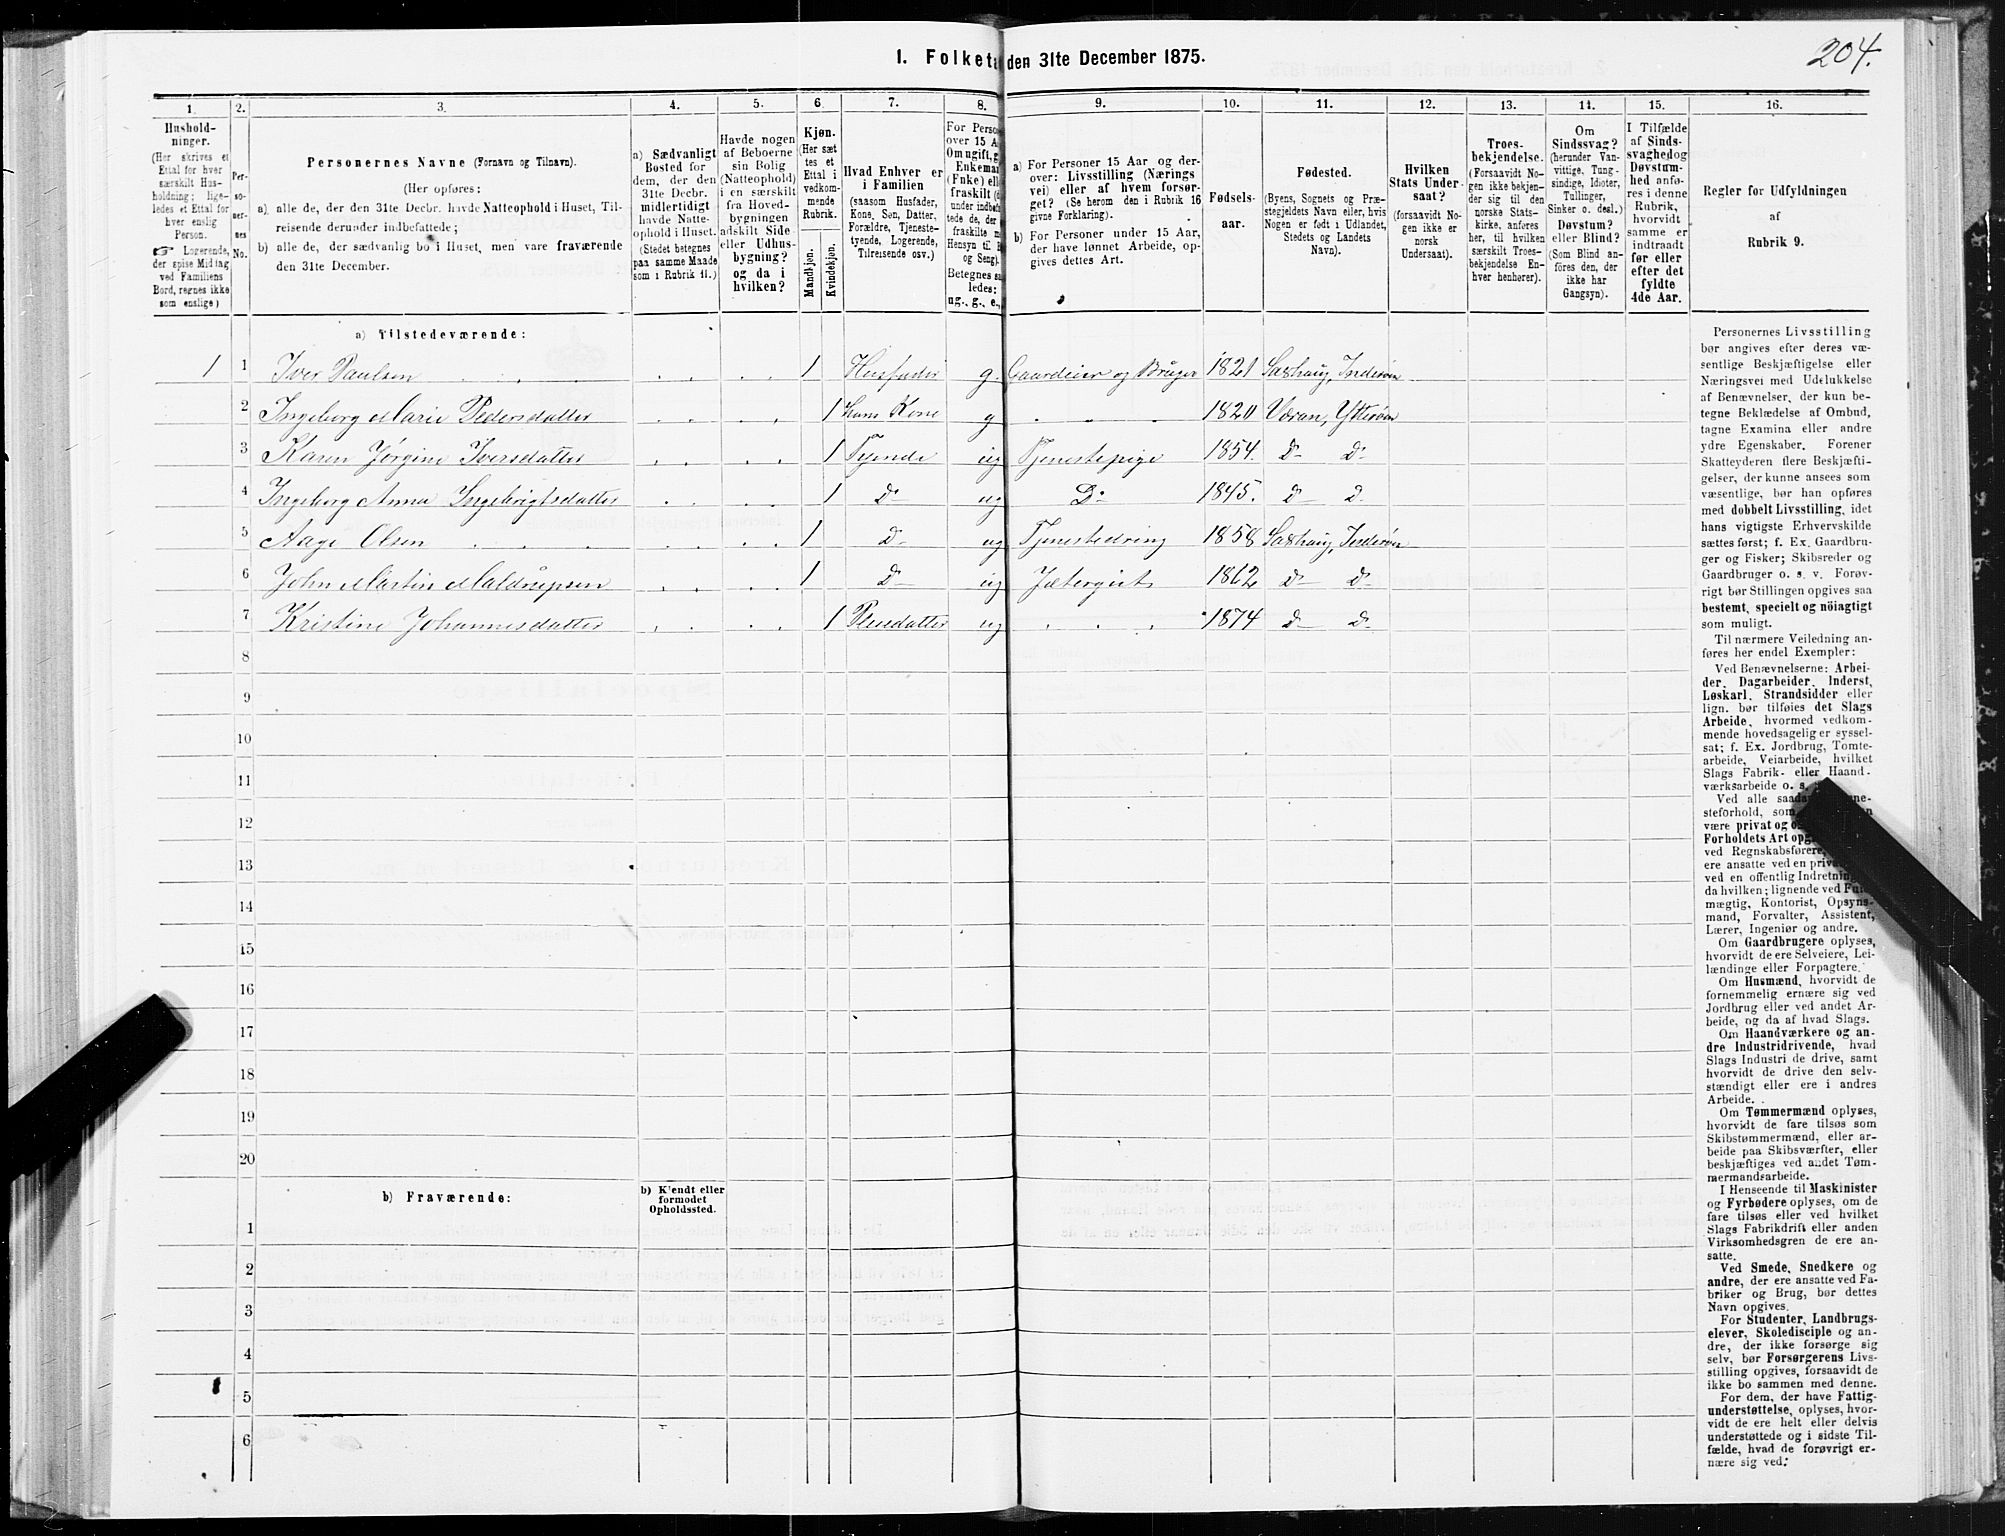 204.
1. Folketæ den 31te December 1875.
1. 2. 3. 4. 5. 6. 7. 8. 9. 10. 11. 12. 13. 14. 15. 16.
Husholdninger.
(Her skrives et
Ettal for hver
særskilt Husholdning;
ligeledes et Ettal for
hver enslig
Person.
☞ Logerende,
der spise Middag
ved Familiens
Bord, regnes ikke
som enslige.)
Personernes
No.
Personernes Navne (Fornavn og Tilnavn).
(Her opføres:
a) alle de, der den 31te Decbr. havde Natteophold i Huset, Tilreisende
derunder indbefattede;
b) alle de, der sædvanlig bo i Huset, men vare fraværende
den 31te December.
a) Sædvanligt
Bosted for
dem, der den
31te Decbr.
midlertidigt
havde Natteophold
i Huset.
(Stedet betegnes
paa samme Maade
som i Rubrik 11.)
Havde nogen
af Beboerne
sin Bolig
(Natteophold)
i en særskilt
fra Hovedbygningen
adskilt Side-
eller Udhusbygning?
og da i
hvilken?
Kjøn.
(Her sættes
et
Ettal i
vedkommende
Rubrik.
Mandkjøn.
Kvindekjøn.
Hvad Enhver er
i Familien
(saasom Husfader,
Kone, Søn, Datter,
Forældre, Tjenestetyende,
Logerende,
Tilreisende osv.)
For Perso
over 15 A
Om ugift, g
Enkema
(Fnke) el
fraskilt (
under indbefattede
de, der
fraskilte
Hensyn til
og Seng).
Betegnes saaledes:
ug., g., e.,
a) For Personer 15 Aar og derover:
Livsstilling (Næringsvei)
eller af hvem forsørget?
(Se herom den i Rubrik 16
givne Forklaring).
b) For Personer under 15 Aar,
der have lønnet Arbeide, opgives
dettes Art.
Fødselsaar.
Fødested.
(Byens, Sognets og Præstegjeldets
Navn eller, hvis
Nogen er født i Udlandet,
Stedets og Landets
Navn).
Hvilken
Stats Undersaat?
(forsaavidt Nogen
ikke er
norsk
Undersaat).
Troesbekjendelse.
(Forsaavidt Nogen
ikke bekjender
sig til den
norske Statskirke,
anføres
her, til hvilken
særskilt Troesbekjendelse
Enhver
henhører).
Om
Sindssvag?
(herunder Vanvittige,
Tungsindige,
Idioter,
Tullinger,
Sinker o. desl.)
Døvstum?
eller Blind?
(Som Blind anføres
den, der
ikke har
Gangsyn).
I Tilfælde
af Sindssvaghed
og
Døvstumhed
anføres
i denne
Rubrik,
hvorvidt
samme er
indtraadt
før eller
efter det
fyldte
4de Aar.
Regler for Udfyldningen
af
Rubrik 9.
a) Tilstedeværende:
1 1 Iver Paulsen 1 Husfader g. Gaardeier og Bruger 1821 Saxhaug, Inderøen
2 Ingeborg Marie Pedersdatter 1 hans Kone g 1820 Værran, Ytterøen
3 Karen Jørgine Iversdatter 1 Tyende ug Tjenestepige 1854. D- D-
4 Ingeborg Anna Ingebrigtsdatter 1 D- ug D- 1845. D- D-
5 Aage Olsen 1 D- ug Tjenestedreng 1858 Saxhaug, Inderøen
6 John Martin 1 D- ug Jætergut 1862 D- D-
7 Kristine Johannesdatter 1 Pleiedatter ug 1874 D- D-
8
9
10
11
12
13
14
15
16
17
18
19
20
b) Fraværende:
b) Kjendt eller
formodet
Opholdssted.
1
2
3
4
5
6
Personernes Livsstilling
bør angives efter deres væsentlige
Beskjæftigelse eller
Næringsvei med Udelukkelse
af Benævnelser, der kun betegne
Beklædelse af Ombud,
tagne Examina eller andre
ydre Egenskaber. Forener
Skatteyderen flere Beskjæftigelser,
der kunne ansees som
væsentlige, bør han opføres
med dobbelt Livsstilling, idet
hans vigtigste Erhvervskilde
sættes først; f. Ex. Gaardbruger
og Fisker; Skibsreder og
Gaardbruger o. s. v. Forøvrigt
bør Stillingen opgives saa
bestemt, specielt og nöiagtigt
som muligt.
Til nærmere Veiledning anføres
her endel Exempler:
Ved Benævnelserne: Arbeider,
Dagarbeider, Inderst,
Løskarl, Strandsidder eller
lign. bør tilføies det Slags
Arbeide, hvormed vedkommende
hovedsagelig er sysselsat;
f. Ex. Jordbrug, Tomtearbeide,
Veiarbeide, hvilket
Slags Fabrik- eller Haandværksarbeide
o. s.
Ved alle saadanne
steforhold, som
være privat og o
Forholdets Art opg
ved Regnskabsførere,
ere ansatte ved en priv
ved en offentlig Indretning,
da hvilken; lignende ved Fuldmægtig,
Kontorist, Opsynsmand,
Forvalter, Assistent,
Lærer, Ingeniør og andre.
Om Gaardbrugere oplyses,
hvorvidt de ere Selveiere, Leilændinge
eller Forpagtere.
Om Husmænd, hvorvidt de
fornemmelig ernære sig ved
Jordbrug eller ved andet Arbeide,
og da af hvad Slags.
Om Haandværkere og andre
Industridrivende, hvad
Slags Industri de drive, samt
hvorvidt de drive den selvstændigt
eller ere i andres
Arbeide.
Om Tømmermænd oplyses,
hvorvidt de fare tilsøs som
Skibstømmermænd, eller arbeide
paa Skibsværfter, eller
beskjæftiges ved andet Tømmermandsarbeide.
I Henseende til Maskinister
og Fyrbødere oplyses, om de
fare tilsøs eller ved hvilket
Slags Fabrikdrift eller anden
Virksomhedsgren de ere ansatte.
Ved Smede, Snedkere og
andre, der ere ansatte ved Fabriker
og Brug, bør dettes
Navn opgives.
For Studenter, Landbrugselever,
Skoledisciple og andre,
der ikke forsørge sig
selv, bør Forsørgerens Livsstilling
opgives, forsaavidt de
ikke bo sammen med denne.
For dem, der have Fattigunderstøttelse,
oplyses, hvorvidt
de ere helt eller delvis
understøttede og i sidste Tilfælde,
hvad de forøvrigt ernære
sig ved.